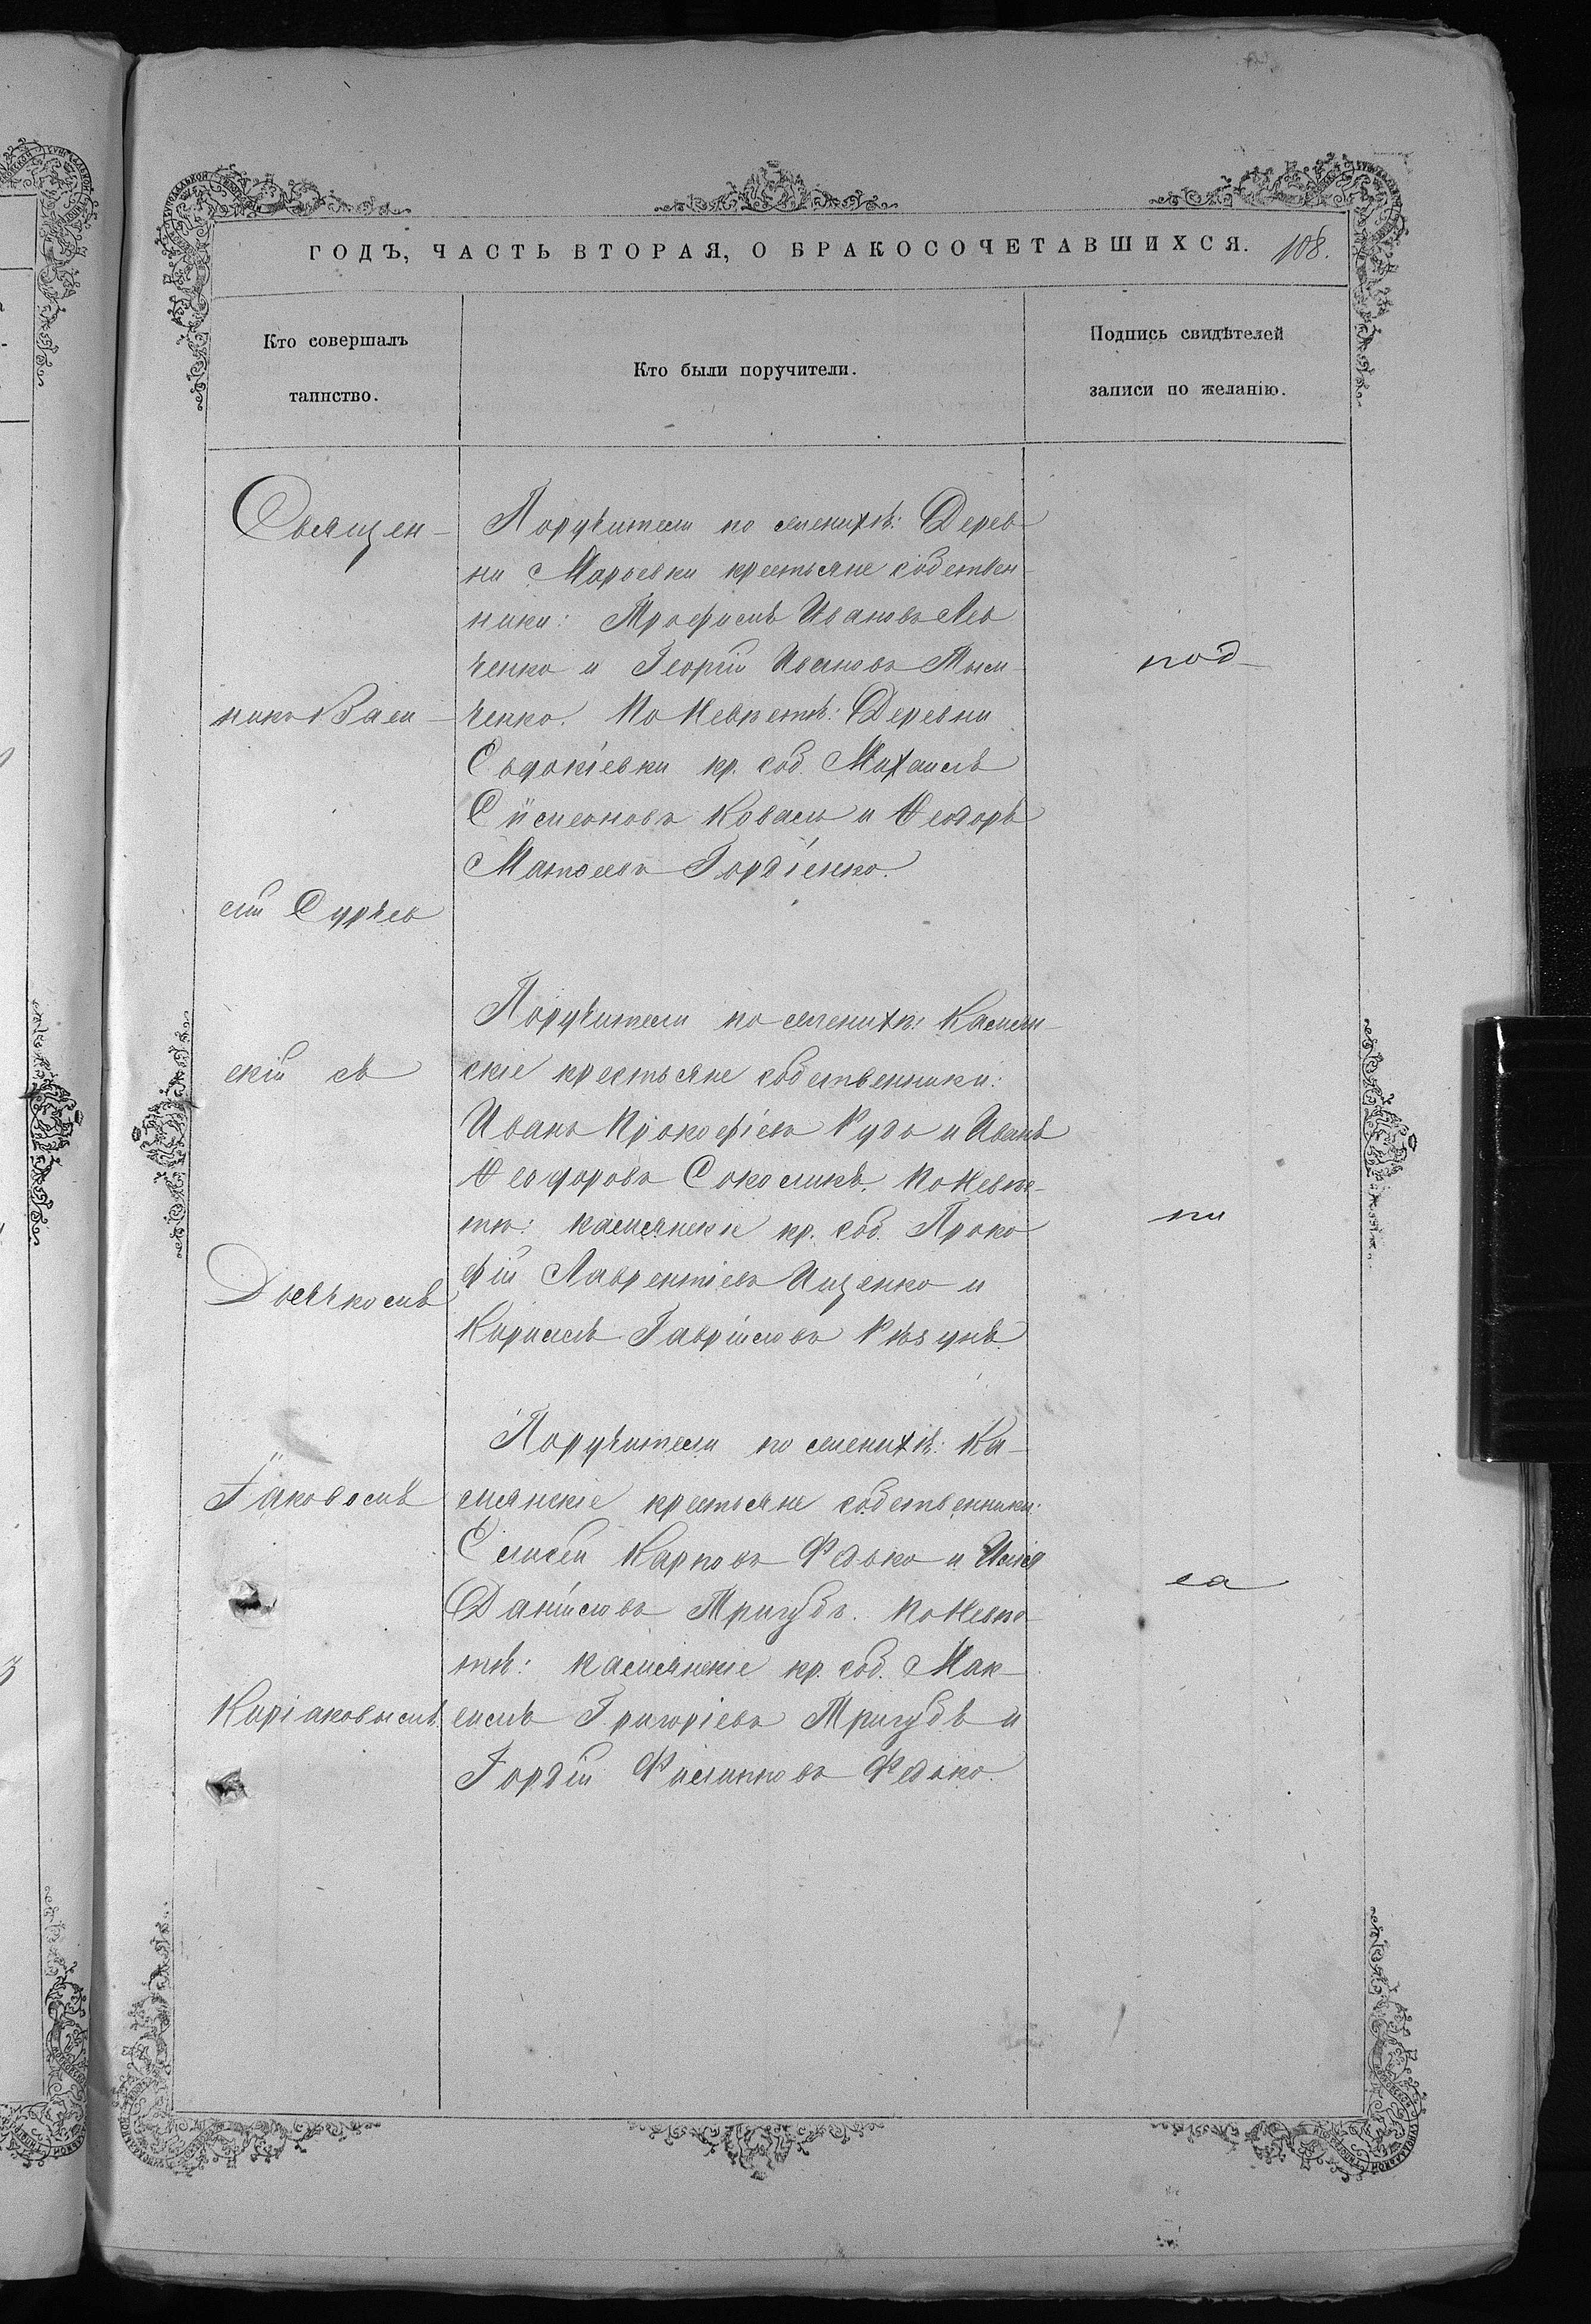 ГОДЪ, ЧАСТЬ ВТОРАЯ, О БРАКОСОЧЕТАВШИХСЯ. 108.
Кто совершалъ
таинство.
Кто были поручители.
Подпись свидѣтелей
записи по желанію.
Священ-
никъ Васи-
лій
скій съ
Дьячкомъ
Іаковомъ
Киріаковымъ.
Поручители по женихѣ: Дерев-
ни Марьевки крестьяне собствен-
ники: Трофимъ Ивановъ Лев
ченко и Георгій Ивановъ Тим-
ченко. По Невѣстѣ: Деревни
Евдокіевки кр. соб. Михаилъ
Симеоновъ Коваль и Ѳеодоръ
Матѳеевъ Гордіенко.
Поручители по женихѣ: Камян-
скіе крестьяне собственники:
Иванъ Прокофіевъ Рудь и Иванъ
Ѳеодоровъ Соколикъ. По Невѣс-
тѣ: камянскіе кр. соб. Проко
фій Лаврентіевъ Ищенко и
Кириллъ Гавріиловъ Рѣзунъ.
Поручители по женихѣ: Ка-
мянскіе крестьяне собственники:
Елисей Карповъ Федько и Илія
Даніиловъ Тригубъ. По Невѣс-
тѣ: камянскіе кр. соб. Мак-
симъ Григоріевъ Тригубъ и
Гордій Филипповъ Федько.
под-
пи
са